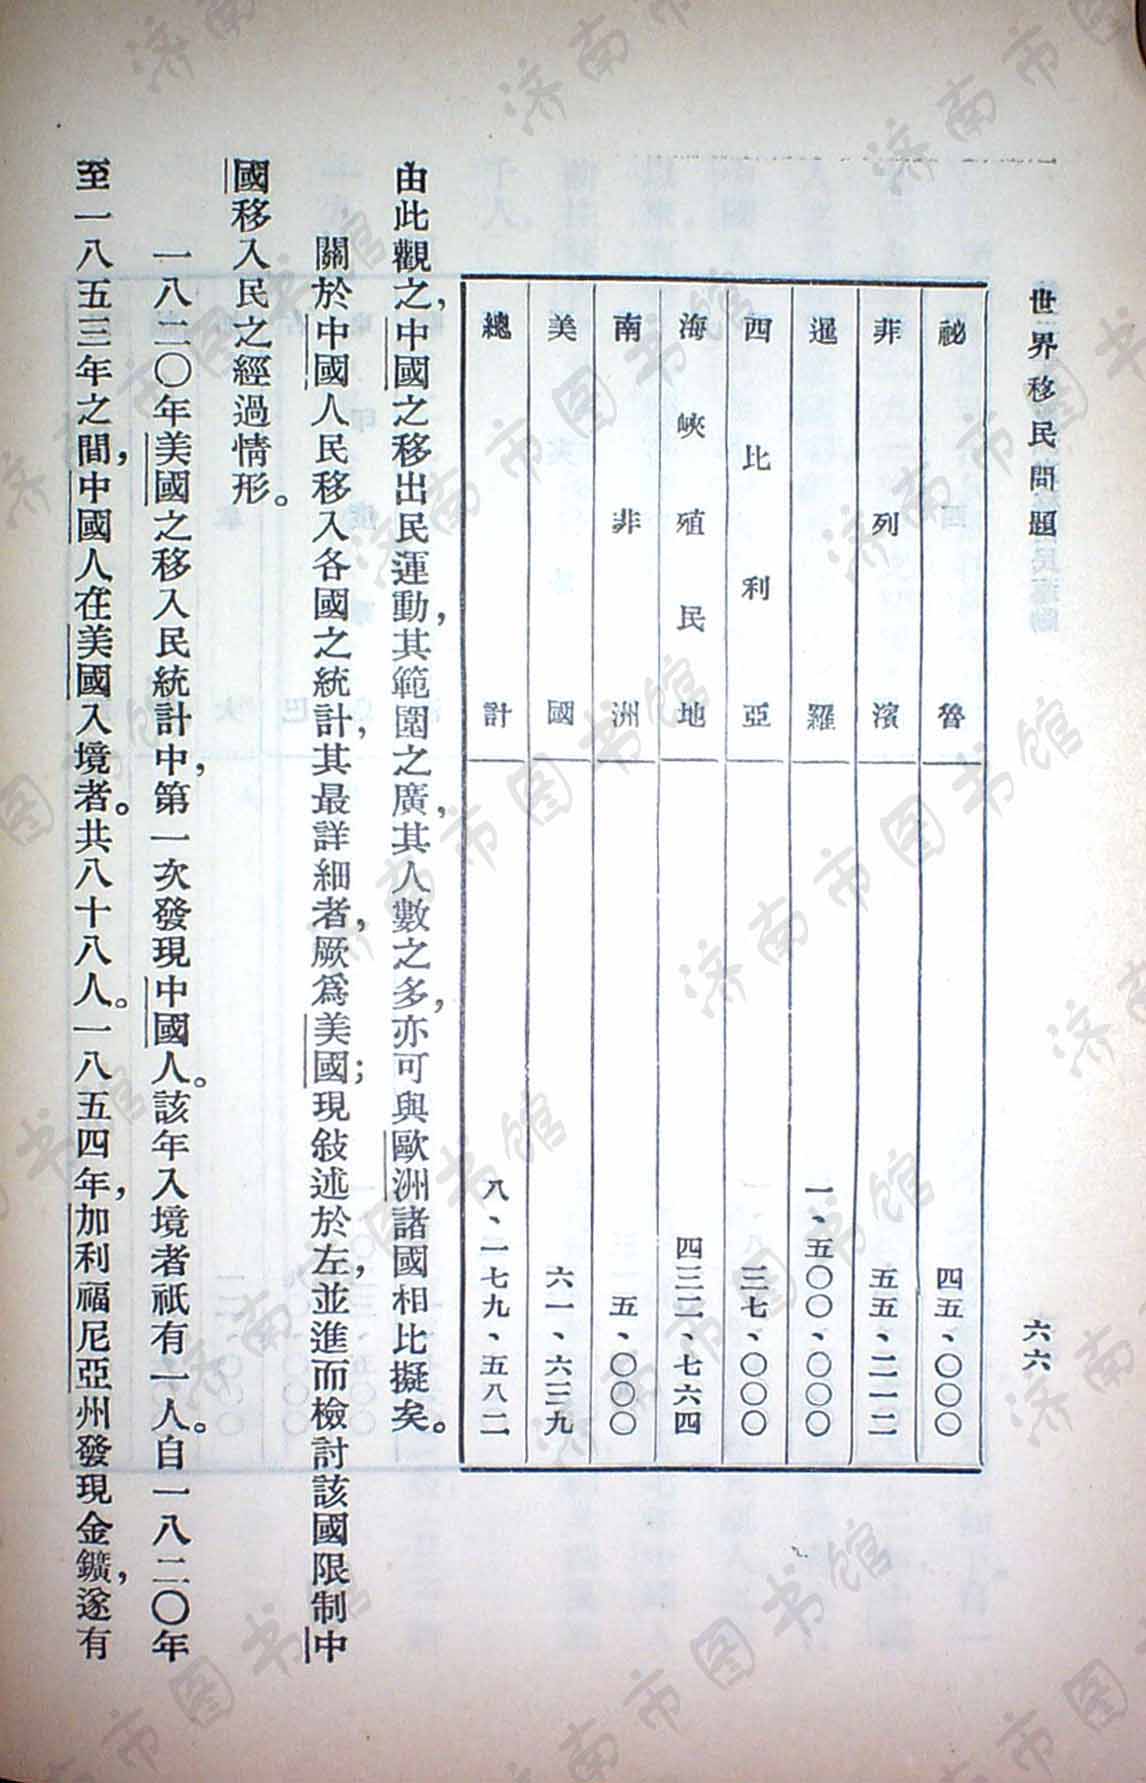 世界移民問題
六六
祕魯 四五、〇〇〇
菲列濱 五五、二一二
暹羅 一、五〇〇、〇〇〇
西比利亞 三七、〇〇〇
海峽殖民地 四三二、七六四
南非洲 五、〇〇〇
美國 六一、六三九
總計 八、一七九、五八二
由此觀之，中國之移出民運動，其範圍之廣，其人數之多，亦可與歐洲諸國相比擬矣。
關於中國人民移入各國之統計，其最詳細者，厥爲美國；現敍述於左，並進而檢討該國限制中
國移入民之經過情形。
一八二〇年美國之移入民統計中，第一次發現中國人。該年入境者祇有一人。自一八二〇年
至一八五三年之間，中國人在美國入境者。共八十八人。一八五四年，加利福尼亞州發現金鑛，遂有
济南市图书馆